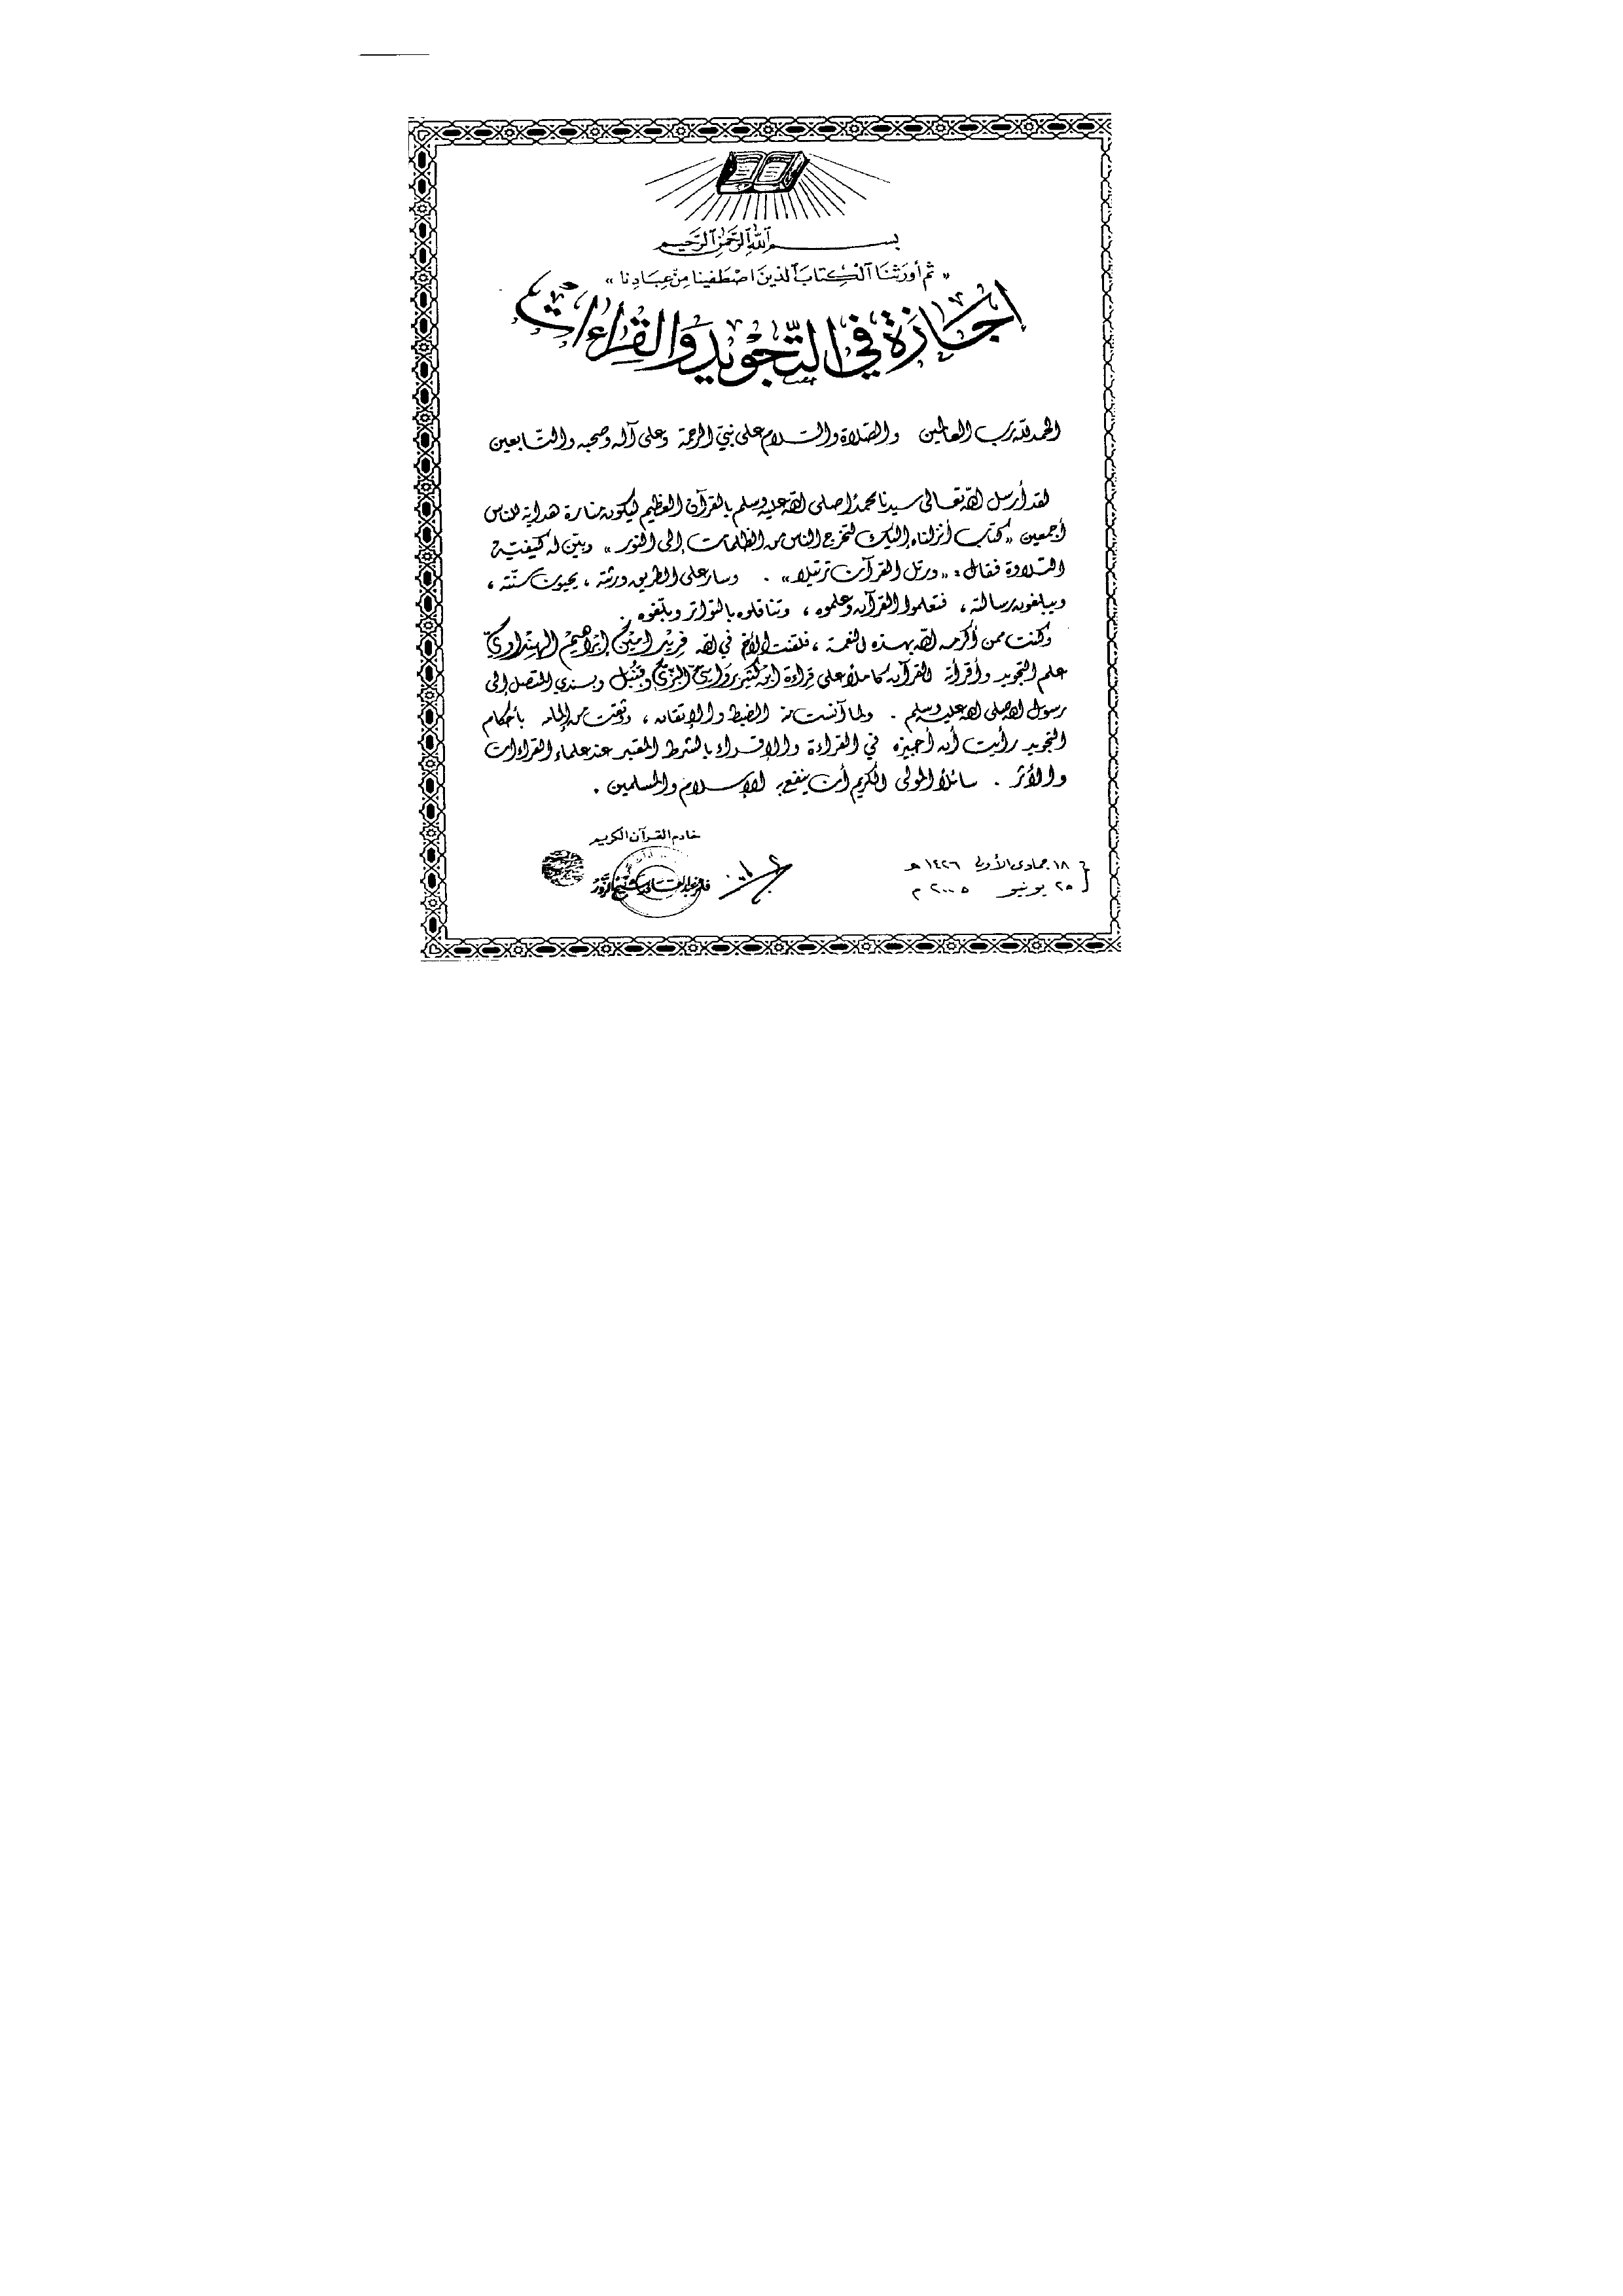 بسم الله الرحمن الرحيم
« ثم أورثنا الكتاب الذين اصطفينا من عبادنا »
إجازة في التجويد والقراءات
الحمد لله رب العالمين والصلاة والسلام على نبي الرحمة وعلى آله وصحبه والتابعين
لقد أرسل الله تعالى سيدنا محمدًا صلى الله عليه وسلم بالقرآن العظيم ليكون منارة هداية للناس
أجمعين « كتب أنزلناه إليك لتخرج الناس من الظلمات إلى النور » وبيّن له كيفية
التلاوة فقال : « ورتل القرآن ترتيلا » . وسار على الطريق ورثته ، يحيون سنّته ،
ويبلغون رسالته ، فتعلموا القرآن وعلموه ، وتناقلوه بالتواتر وبلّغوه .
وكنت ممن أكرمه الله بهذه النعمة ، فلقنت الأخ في الله فريد امين إبراهيم الهنداوي
علم التجويد وأقرأته القرآن كاملاً على قراءة ابن كثير روايتي البزي وقنبل وبسندي المتصل إلى
رسول الله صلى الله عليه وسلم . ولما آنست منه الضبط والإتقان ، وثقت من إلمامه بأحكام
التجويد رأيت أن أجيزه في القراءة والإقراء بالشرط المعتبر عند علماء القراءات
والأثر . سائلاً المولى الكريم أن ينفع به الإسلام والمسلمين .
خادم القرآن الكريم
١٨ جمادى الأولى ١٤٢٦ هـ
٢٥ يونيو ٢٠٠٥ م